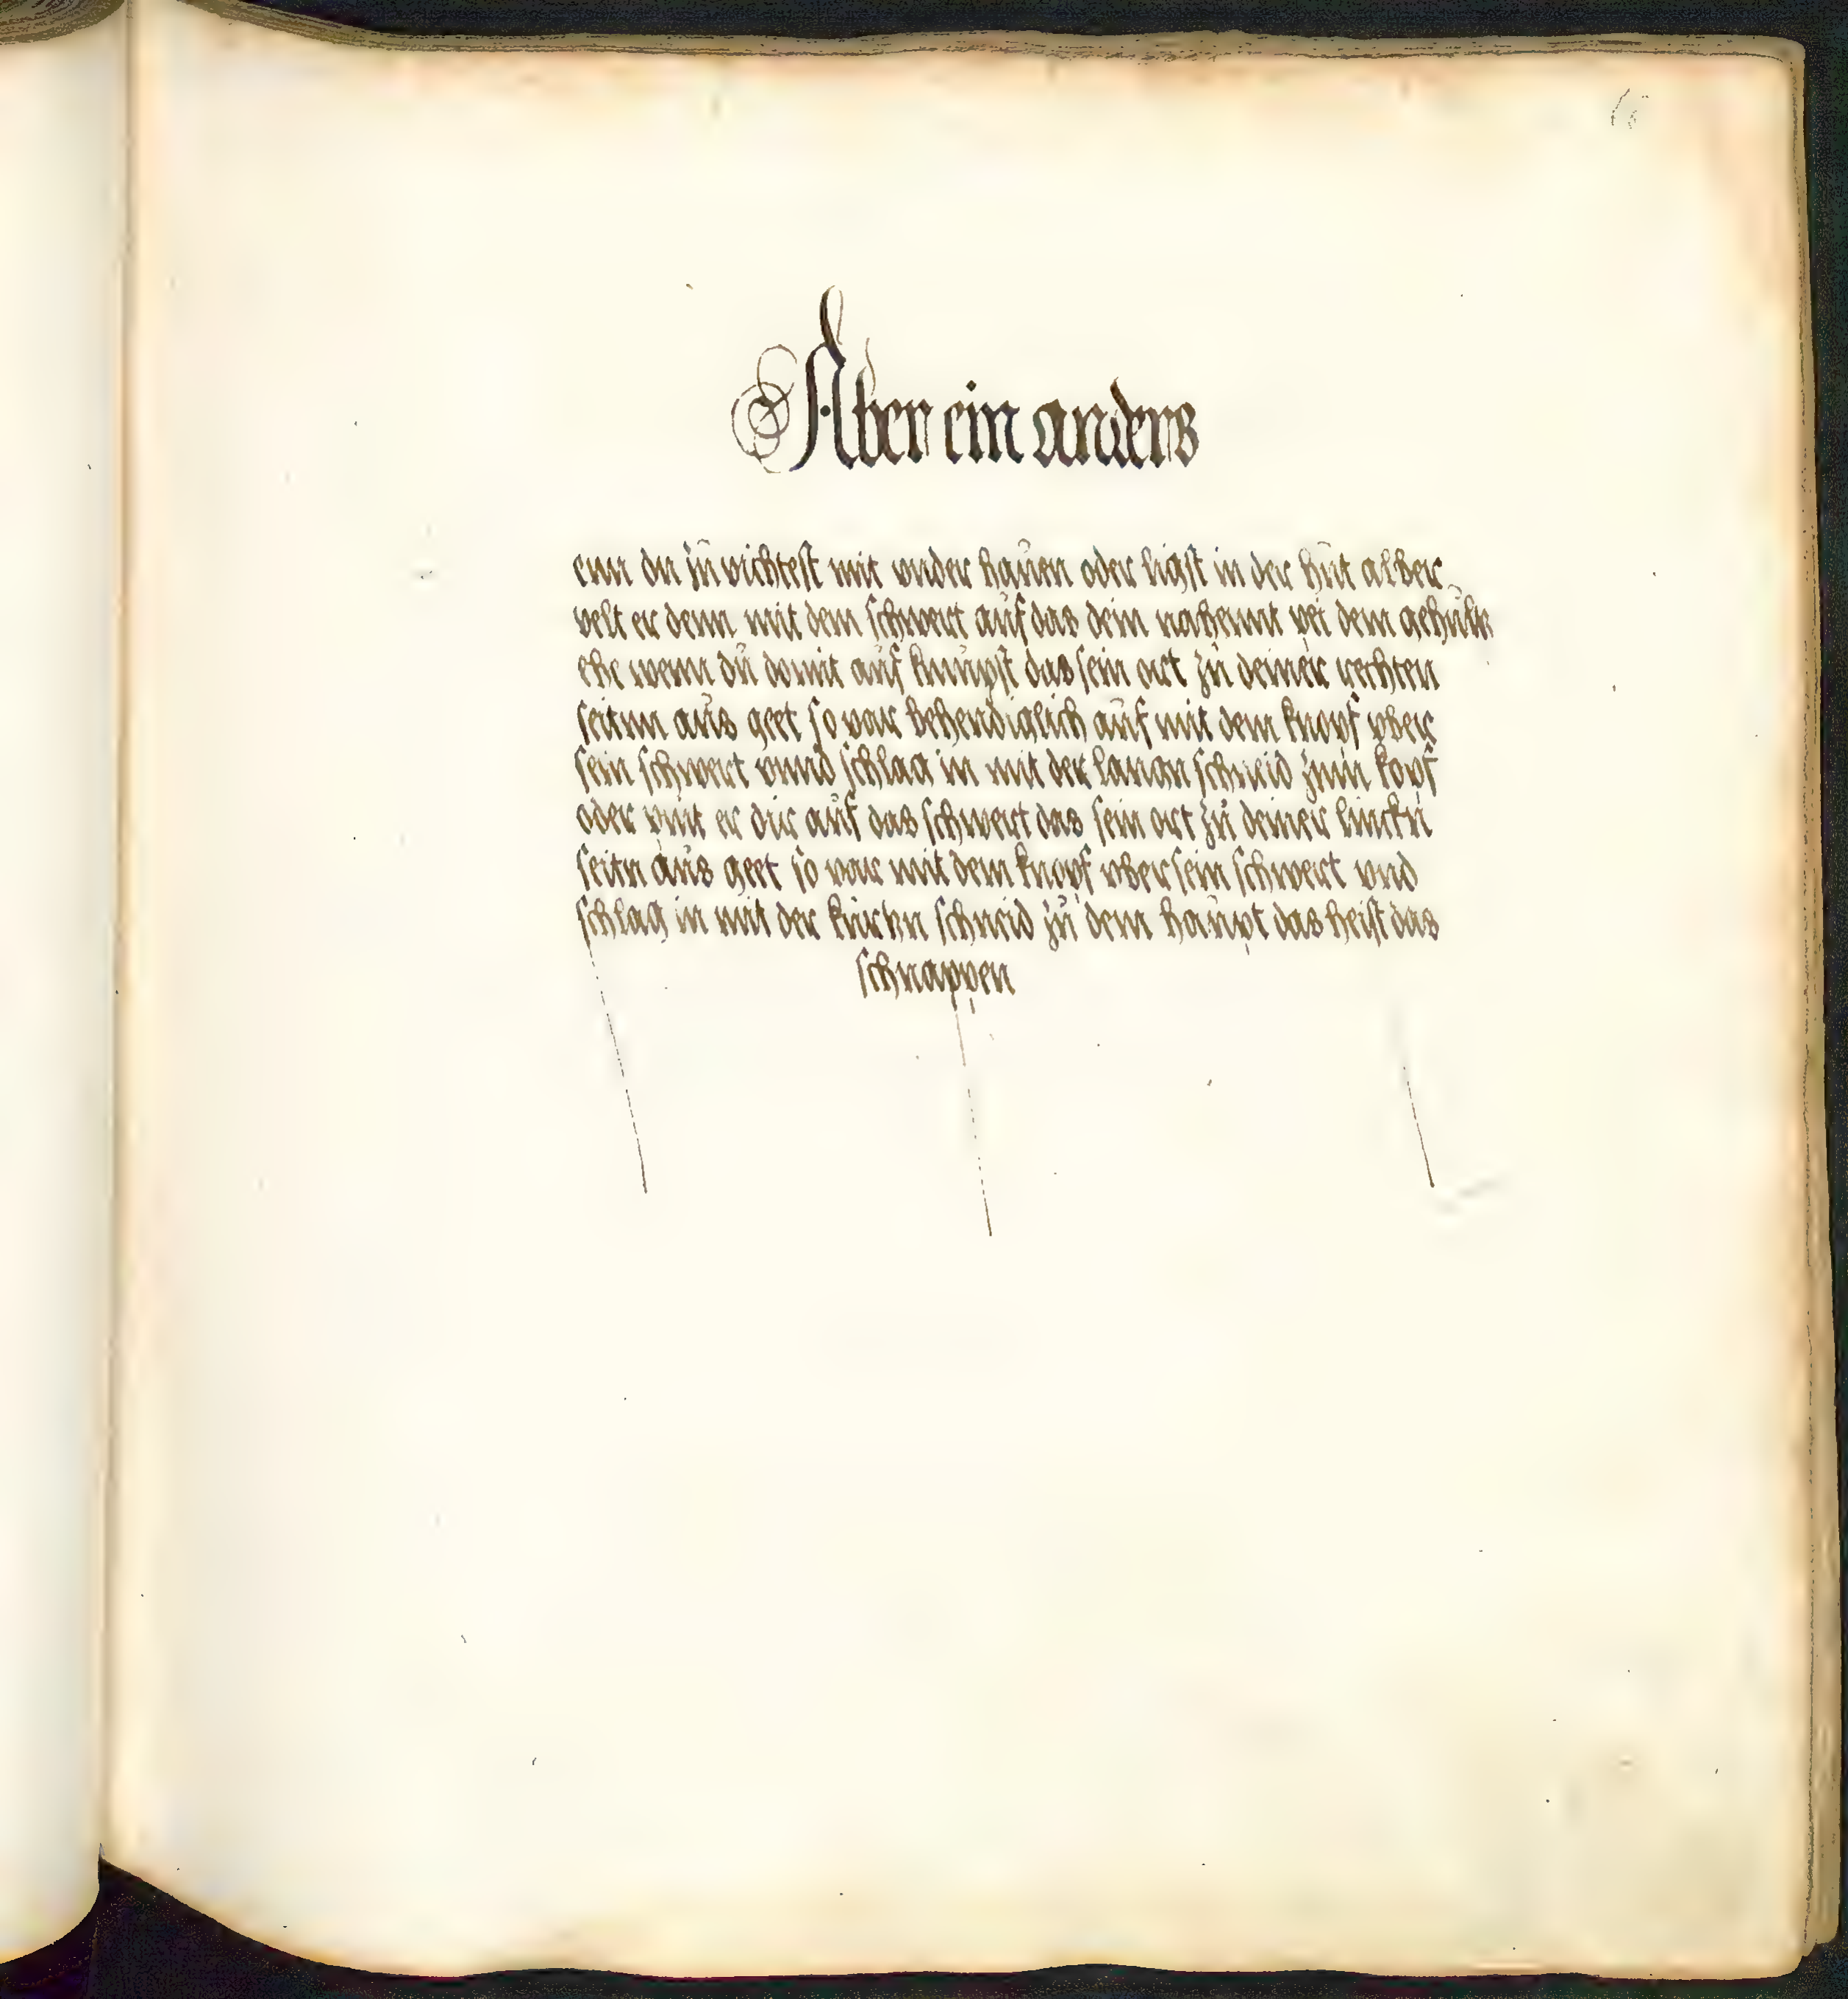 Aber ein anders
enn du zů vichtest mit vnder haůen oder ligst in der hůt alber
velt er denn mit dem schwert aůf das dein nahennt pei dem gehůltz
ehe wenn dů domit aůf knůpst das sein ort zů deiner rechten
seitnn aůs geet so var behendiglich aůf mit dem knopf vber
sein schwert vnnd schlag in mit der langn schneid zům kopf
oder vint er dir aůf das schwert das sein ort zů deiner linckn
seitn aůs geet so var mit dem knopf vber sein schwert vnd
schlag in mit der kůrtzn schneid zů dem haůpt das heist das
schnappen